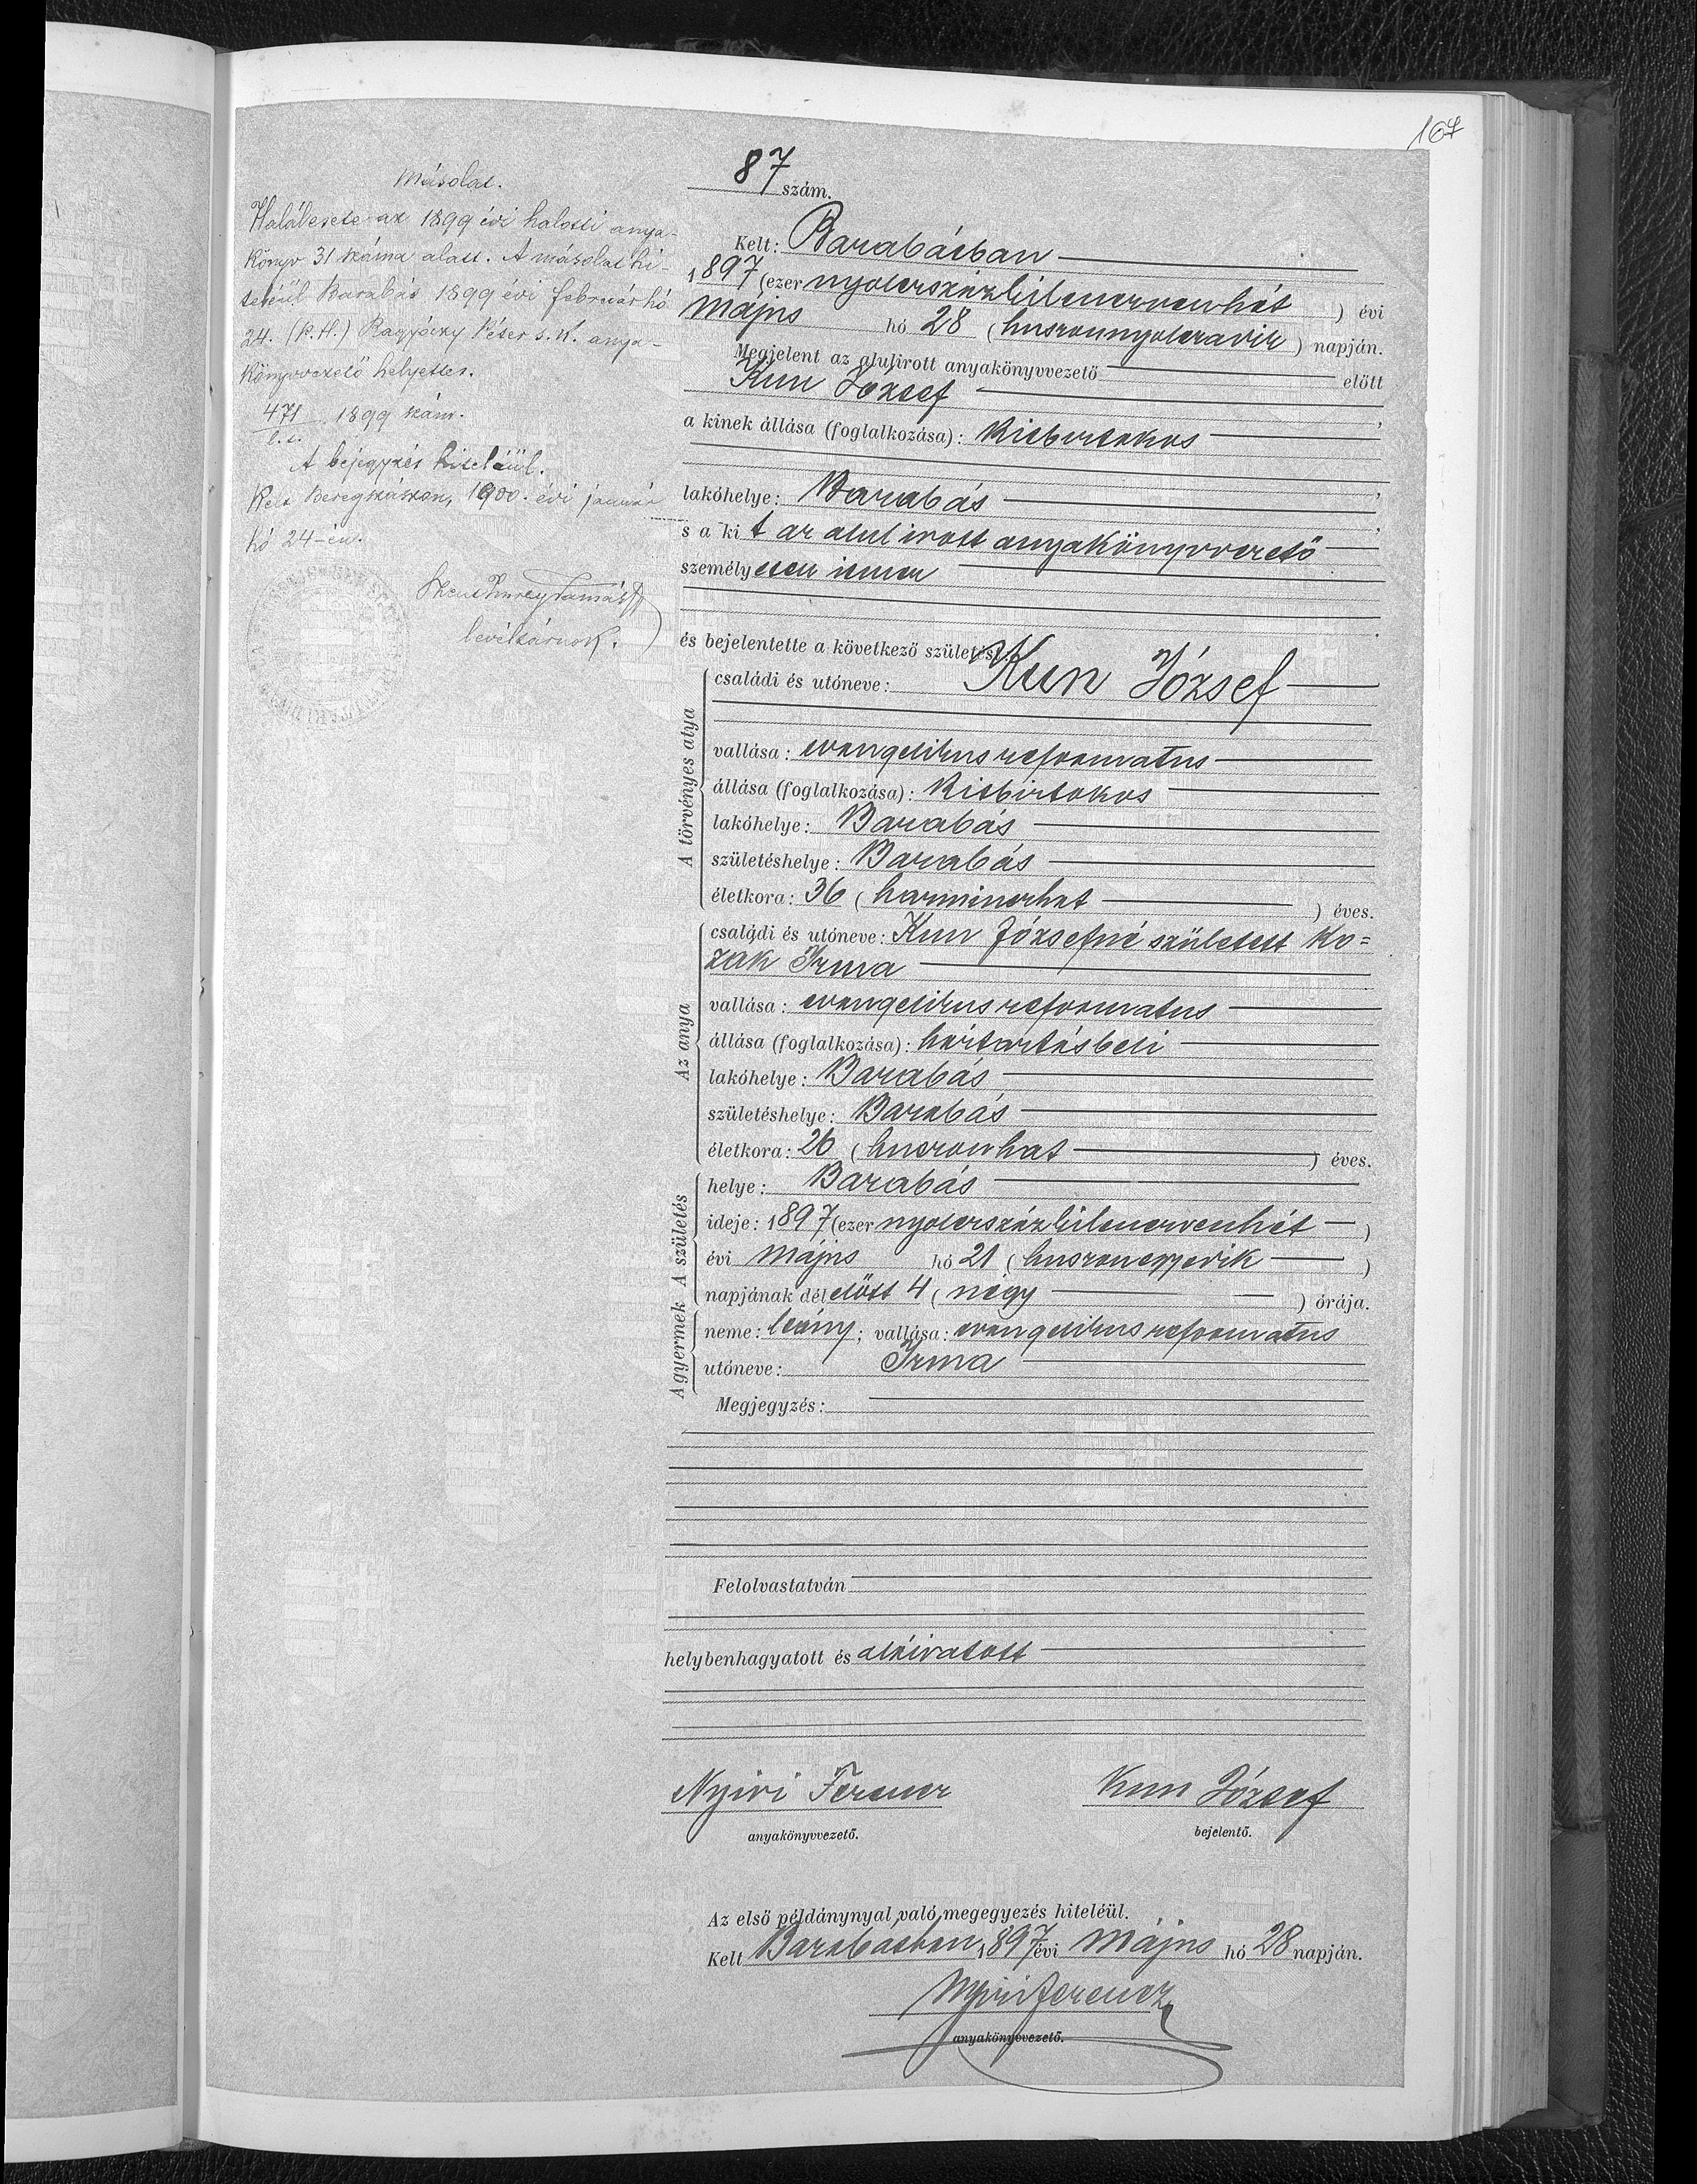 167
Másolat.
Halálesete az 1899 évi halotti anya-
könyv 31 száma alatt. A másolat hi-
teléül Barabás 1899 évi február hó
24. (P.H.) Péter s. k. anya-
könyvvezető helyettes.
471 1899 szám.
A bejegyzés hiteléül.
Kelt Beregszászon, 1900. évi január
hó 24-én.
levéltárnok.
87 szám.
Kelt: Barabásban
1897 (ezer nyolczszázkilenczvenhét) évi
május hó 28 (huszonnyolczadik) napján.
Megjelent az alulirott anyakönyvvezető előtt
Kun József
a kinek állása (foglalkozása): kisbirtokos
lakóhelye: Barabás
s a kit az alulirott anyakönyvvezető
személyesen ismer
és bejelentette a következő születést:
A törvényes atya
családi és utóneve: Kun József
vallása: evangelikus reformatus
állása (foglalkozása): kisbirtokos
lakóhelye: Barabás
születéshelye: Barabás
életkora: 36 (harminczhat) éves.
Az anya
családi és utóneve: Kun Józsefné született Ko=
zak Irma
vallása: evangelikus reformatus
állása (foglalkozása): háztartásbeli
lakóhelye: Barabás
születéshelye: Barabás
életkora: 26 (huszonhat) éves.
A születés
helye: Barabás
ideje: 1897 (ezer nyolczszázkilenczvenhét)
évi május hó 21 (huszonegyedik)
napjának délelőtt 4 (négy) órája.
A gyermek
neme: leány; vallása: evangelikus reformatus
utóneve: Irma
Megjegyzés:
Felolvastatván
helybenhagyatott és aláiratott
Nyiri Ferencz Kun József
anyakönyvvezető. bejelentő.
Az első példánynyal való megegyezés hiteléül.
Kelt Barabásban, 1897 évi május hó 28 napján.
Nyiri Ferencz
anyakönyvvezető.